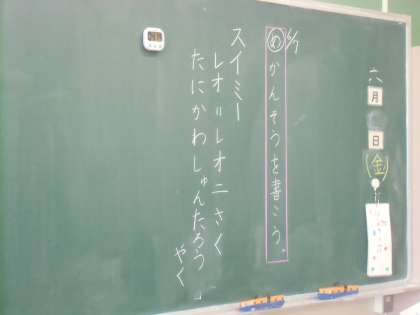 六月
日(金)
6/7
めかんそうを書こう。
スイミー
レオ=レオニさく
たにかわしゅんたろう
やく